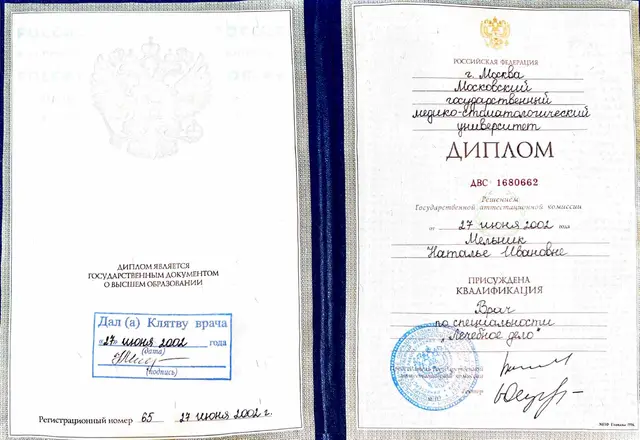 ДИПЛОМ ЯВЛЯЕТСЯ
ГОСУДАРСТВЕННЫМ ДОКУМЕНТОМ
О ВЫСШЕМ ОБРАЗОВАНИИ
Дал (а) Клятву врача
"27" июня 2002 года
(дата)
(подпись)
Регистрационный номер 65 27 июня 2002 г.
РОССИЙСКАЯ ФЕДЕРАЦИЯ
г. Москва
Московский
государственный
медико-стоматологический
университет
ДИПЛОМ
ДВС 1680662
Решением
Государственной аттестационной комиссии
от 27 июня 2002 года
Мельник
Наталье Ивановне
ПРИСУЖДЕНА
КВАЛИФИКАЦИЯ
Врач
по специальности
"Лечебное дело"